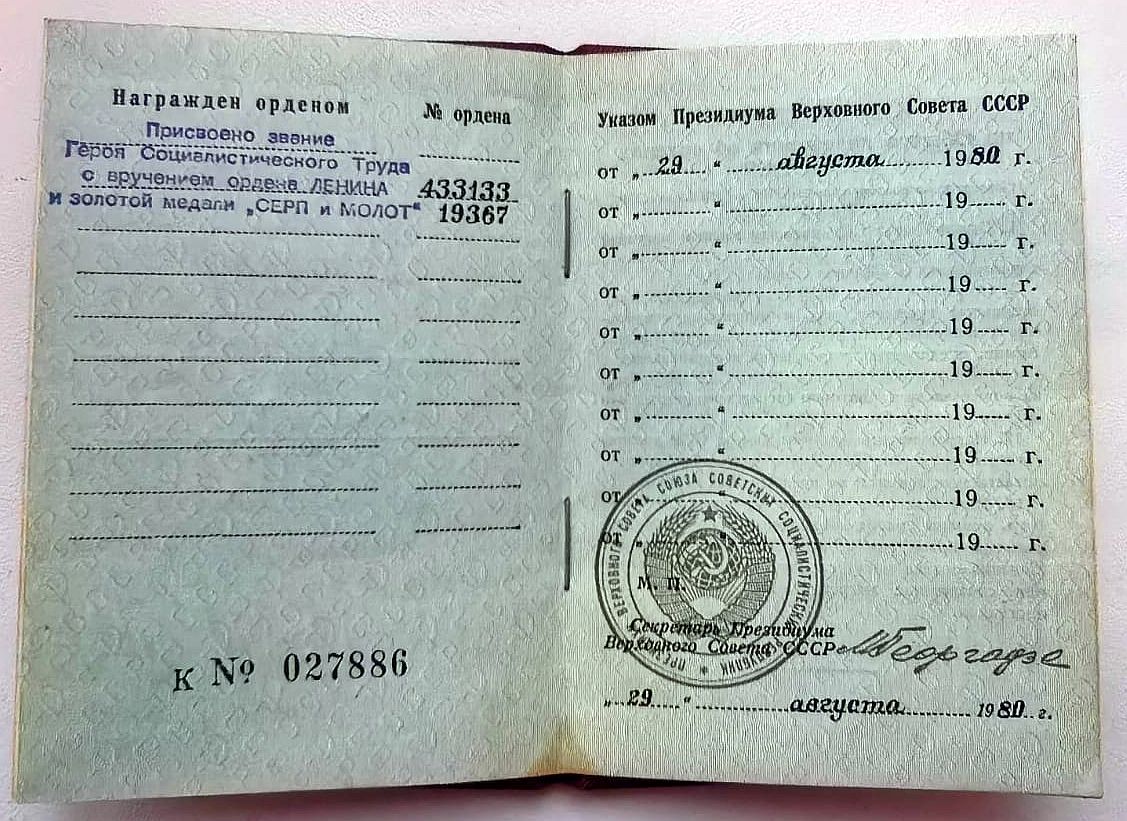 Награжден орденом № ордена
Присвоено звание
Героя Социалистического Труда
с вручением ордена ЛЕНИНА 433133
и золотой медали „СЕРП и МОЛОТ“ 19367
К № 027886
Указом Президиума Верховного Совета СССР
от „29“ августа 1980 г.
от „ “ 19 г.
от „ “ 19 г.
от „ “ 19 г.
от „ “ 19 г.
от „ “ 19 г.
от „ “ 19 г.
от „ “ 19 г.
от „ “ 19 г.
от „ “ 19 г.
ВЕРХОВНОГО СОВЕТА СОЮЗА СОВЕТСКИХ СОЦИАЛИСТИЧЕСКИХ
М. П.
Секретарь Президиума
Верховного Совета СССР МГеоргадзе
„29“ августа 1980 г.